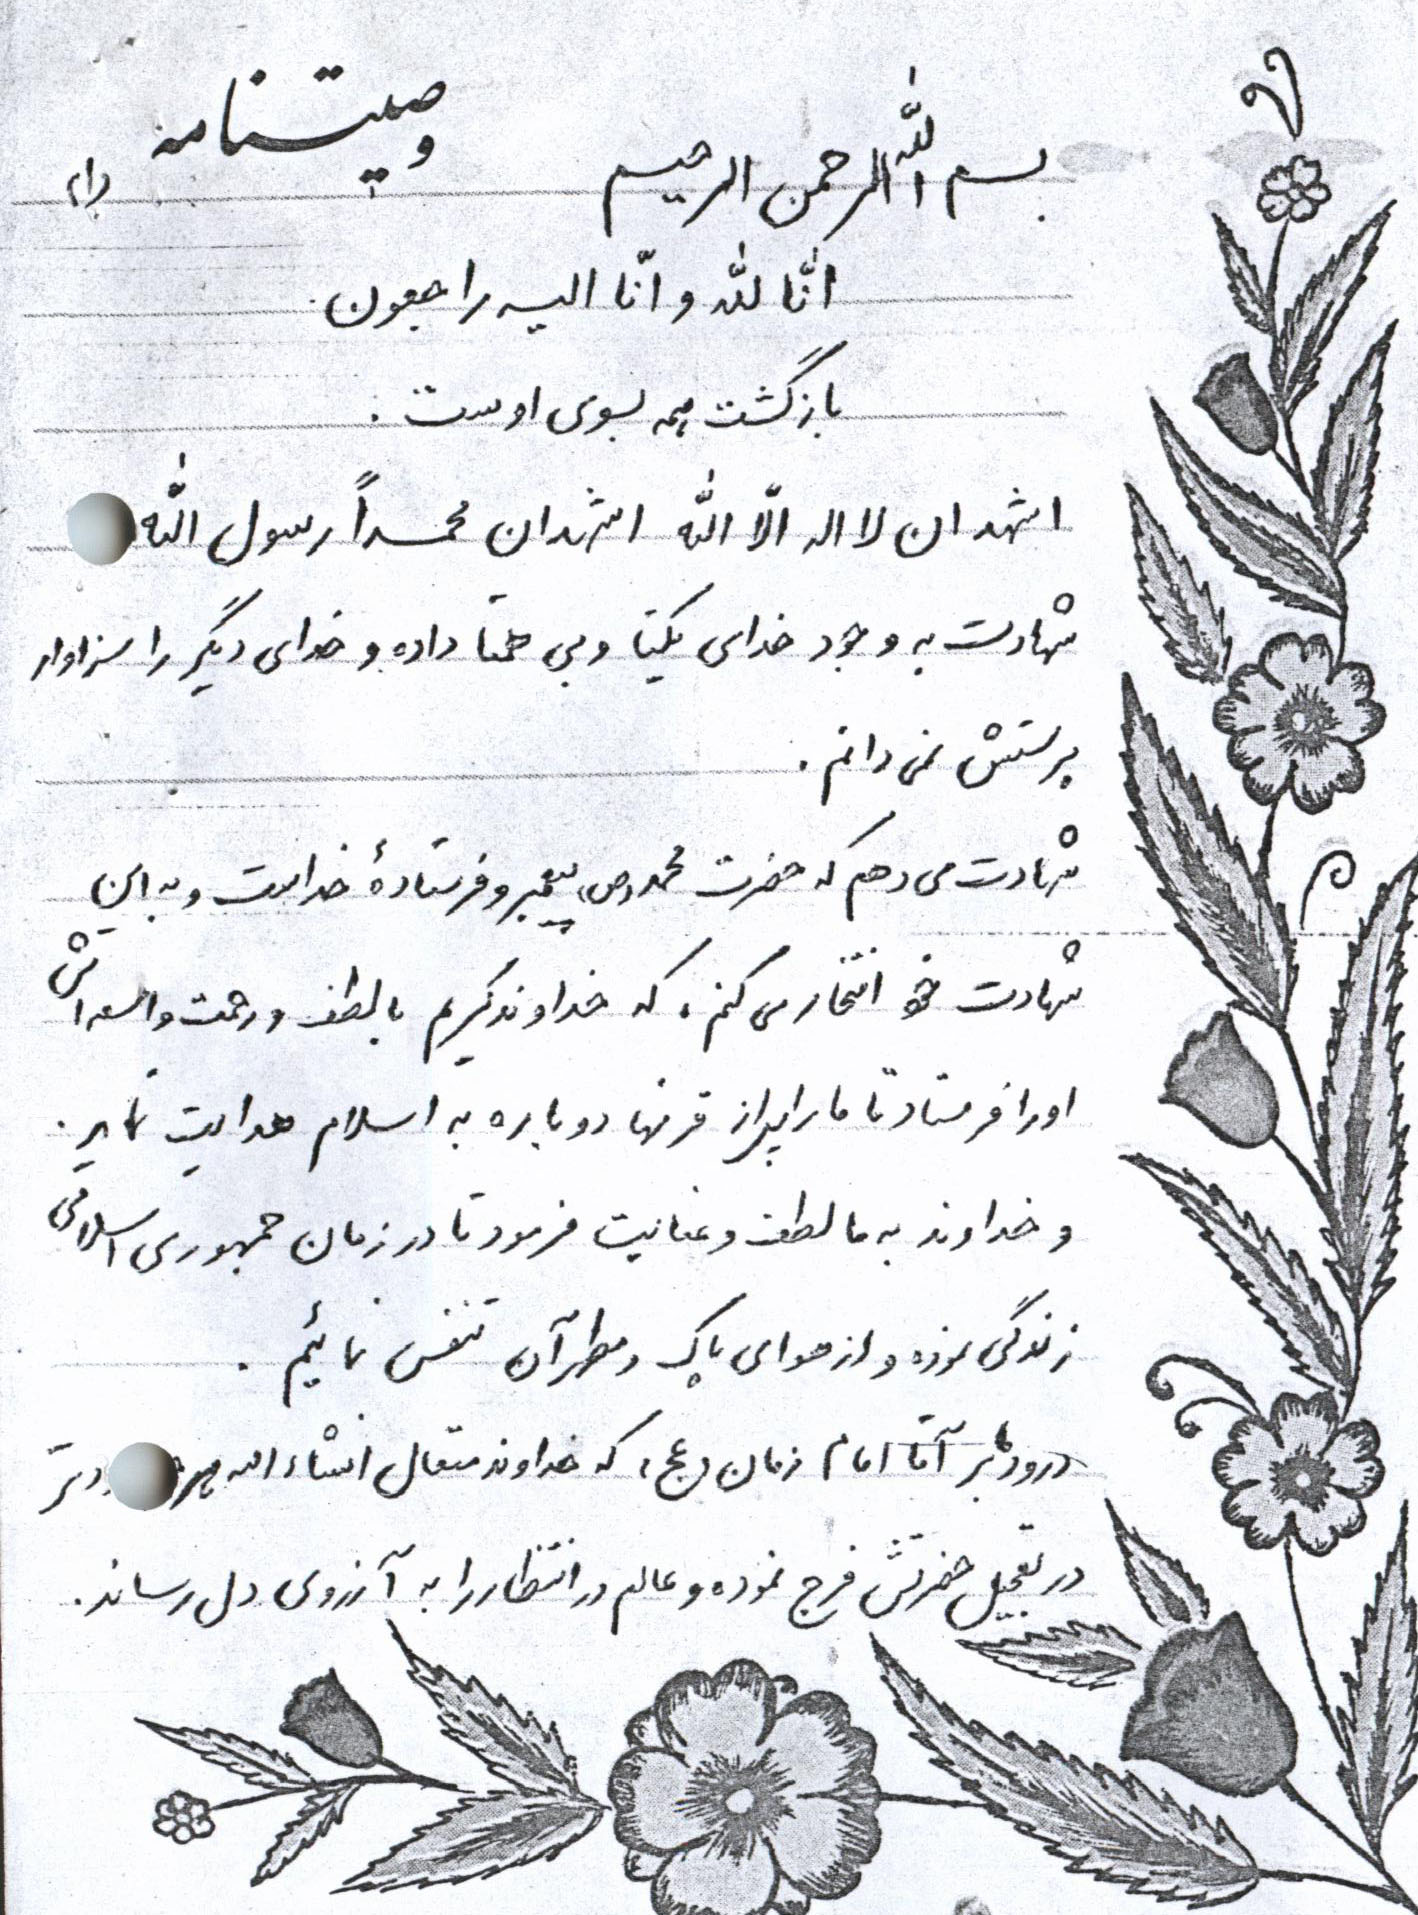 وصیتنامه
بسم الله الرحمن الرحیم
انّا لله و انّا الیه راجعون.
بازگشت همه بسوی اوست.
اشهد ان لا اله الّا الله اشهد ان محمداً رسول الله
شهادت به وجود خدای یکتا و بی همتا داده و خدای دیگر را سزاوار
پرستش نمی دانم.
شهادت می دهم که حضرت محمد (ص) پیغمبر و فرستادهٔ خداست و به این
شهادت خود افتخار می کنم، که خداوند کریم با لطف و رحمت واسعه اش
او را فرستاد تا ما را پس از قرنها دوباره به اسلام هدایت نماید.
و خداوند به ما لطف و عنایت فرمود تا در زمان جمهوری اسلامی
زندگی نموده و از هوای پاک و مطهر آن تنفس نمائیم.
درودها بر آقا امام زمان (عج)، که خداوند متعال انشاء الله هر
در تعجیل حضرتش فرج نموده و عالم در انتظار را به آرزوی دل رساند.